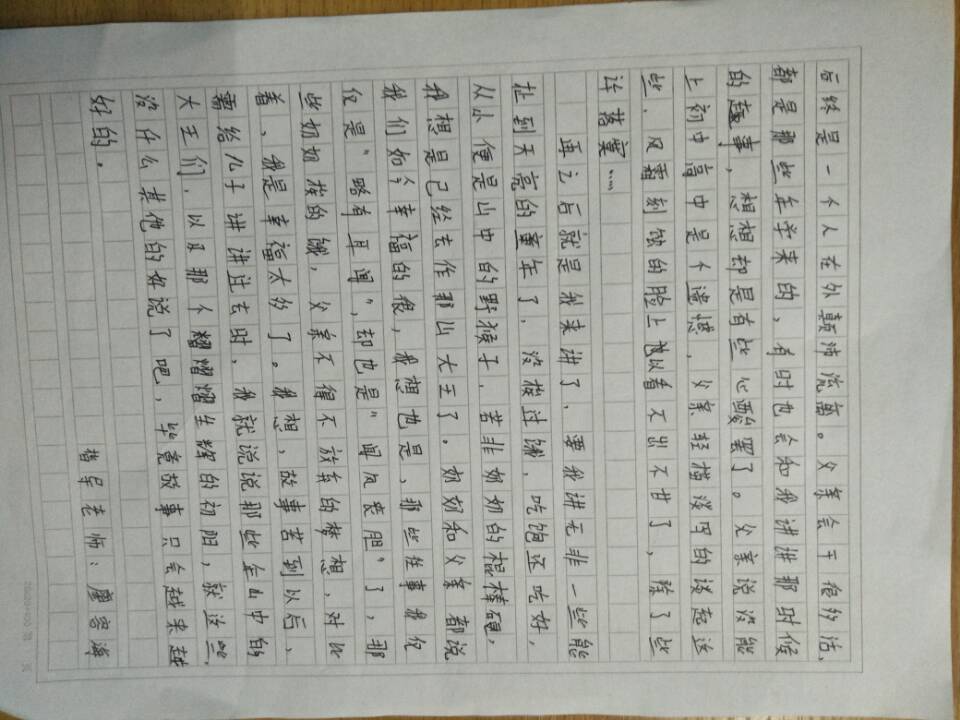 后终是一个人在外颠沛流离。父亲会干很多活、
都是那些年学来的，有时也会和我讲讲那时候
的趣事，想想却是有些心酸罢了。父亲说没能
上初中高中是个遗憾，父亲轻描淡写的谈起这
些，风霜刻蚀的脸上也看不出不甘了，除了些
许落寞……
再之后就是我来讲了，要我讲无非一些能
扯到天亮的童年了，没挨过饿，吃饱还吃好，
从小便是山中的野猴子，若非奶奶的棍棒硬，
我想是已经去作那山大王了。奶奶和父亲都说
我们如今幸福的很，我想也是、那些往事我仅
仅是"略有耳闻"，却也是"闻风丧胆"了，那
些奶奶挨的饿，父亲不得不放弃的梦想，对比
着、我是幸福太多了。我想，故事苦到以后、
需给儿子讲讲过去时，我就说说那些金山中的
大王们，以及那个熠熠生辉的初阳，就这些，
没什么其他的好说了吧，毕竟故事只会越来越
好的。
指导老师：廖容海